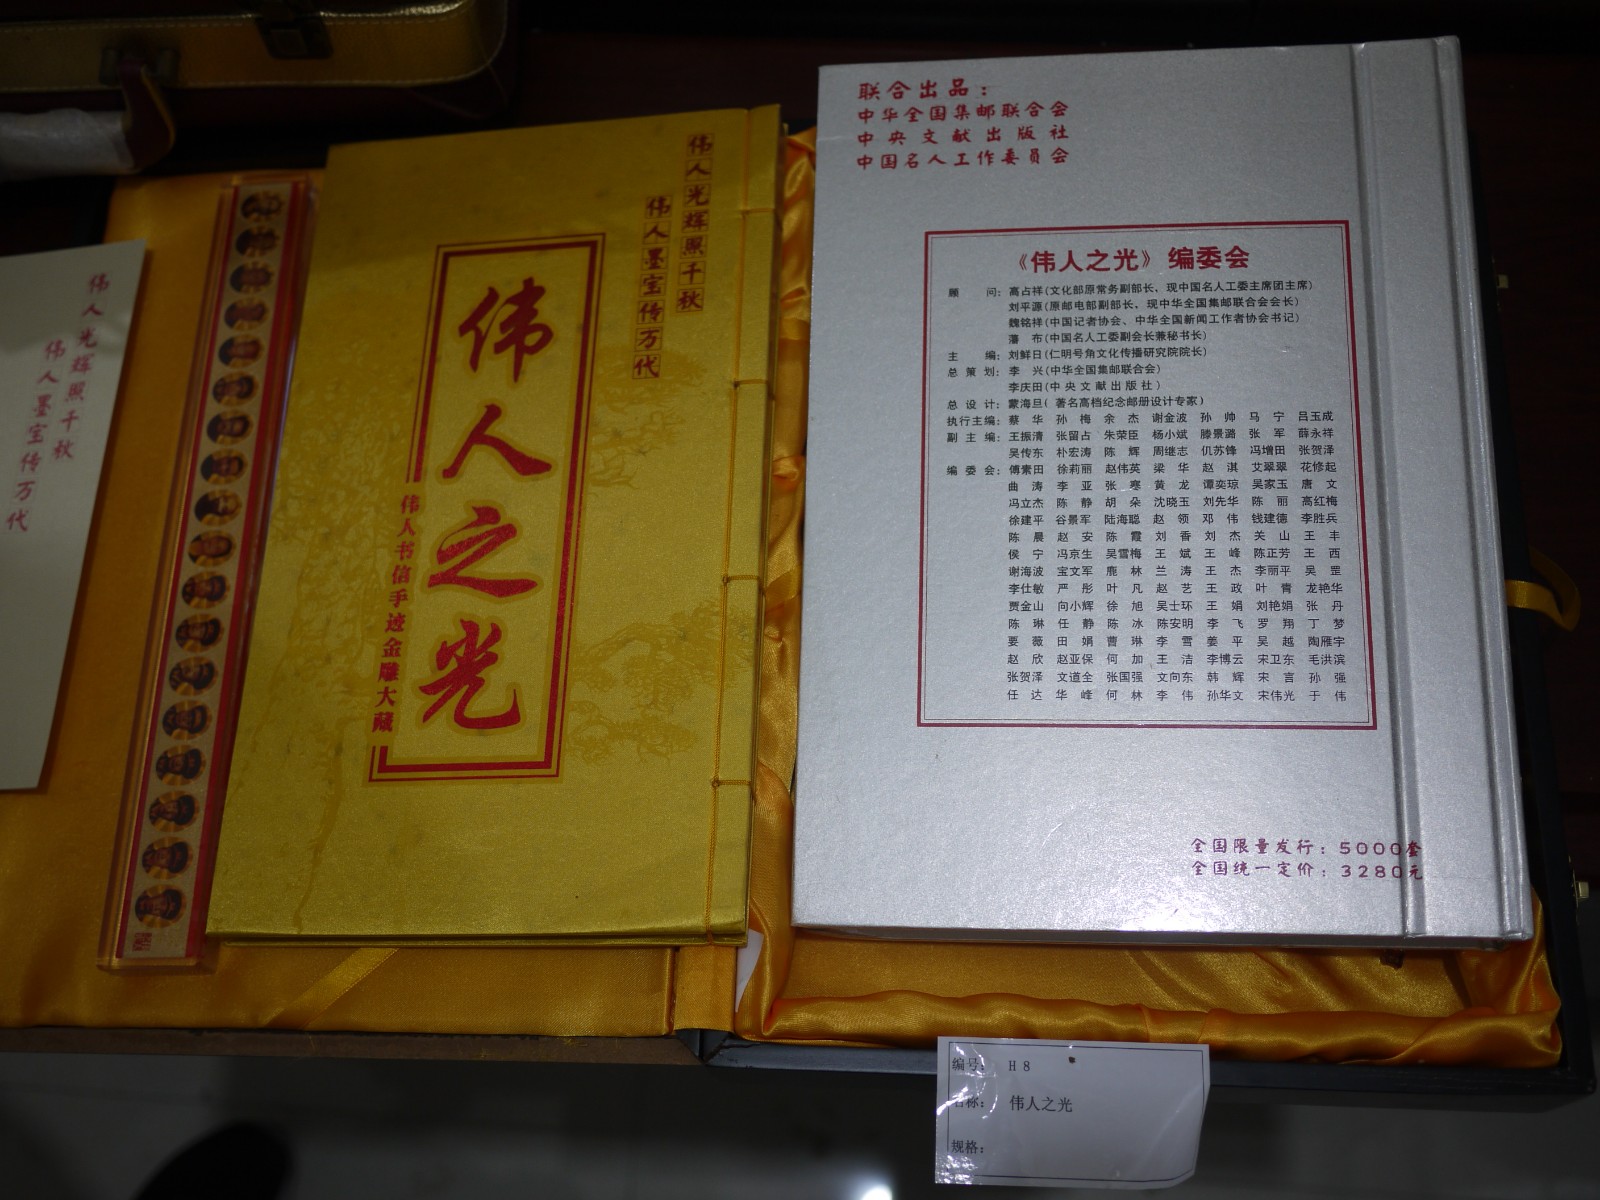 伟人光辉照千秋
伟人墨宝传万代
伟人光辉照千秋
伟人墨宝传万代
伟人之光
伟人书信手迹金雕大藏
联合出品：
中华全国集邮联合会
中央文献出版社
中国名人工作委员会
《伟人之光》编委会
顾 问：高占祥(文化部原常务副部长、现中国名人工委主席团主席)
刘平源(原邮电部副部长、现中华全国集邮联合会会长)
魏铭祥(中国记者协会、中华全国新闻工作者协会书记)
藩 布(中国名人工委副会长兼秘书长)
主 编：刘鲜日(仁明号角文化传播研究院院长)
总 策 划：李 兴(中华全国集邮联合会)
李庆田(中央文献出版社)
总 设 计：蒙海旦(著名高档纪念邮册设计专家)
执行主编：蔡 华 孙 梅 余 杰 谢金波 孙 帅 马 宁 吕玉成
副 主 编：王振清 张留占 朱荣臣 杨小斌 滕景潞 张 军 薛永祥
吴传东 朴宏涛 陈 辉 周继志 仉苏锋 冯增田 张贺泽
编 委 会：傅素田 徐莉丽 赵伟英 梁 华 赵 淇 艾翠翠 花修起
曲 涛 李 亚 张 骞 黄 龙 谭奕琼 吴家玉 唐 文
冯立杰 陈 静 胡 朵 沈晓玉 刘先华 陈 丽 高红梅
徐建平 谷景军 陆海聪 赵 领 邓 伟 钱建德 李胜兵
陈 晨 赵 安 陈 霞 刘 香 刘 杰 关 山 王 丰
侯 宁 冯京生 吴雪梅 王 斌 王 峰 陈正芳 王 西
谢海波 宝文军 鹿 林 兰 涛 王 杰 李丽平 吴 罡
李仕敏 严 彤 叶 凡 赵 艺 王 政 叶 青 龙艳华
贾金山 向小辉 徐 旭 吴士环 王 娟 刘艳娟 张 丹
陈 琳 任 静 陈 冰 陈安明 李 飞 罗 翔 丁 梦
要 薇 田 娟 曹 琳 李 雪 姜 平 吴 越 陶雁宇
赵 欣 赵亚保 何 加 王 洁 李博云 宋卫东 毛洪滨
张贺泽 文道全 张国强 文向东 韩 辉 宋 言 孙 强
任 达 华 峰 何 林 李 伟 孙华文 宋伟光 于 伟
全国限量发行：5000套
全国统一定价：3280元
编号： H 8
名称： 伟人之光
规格：